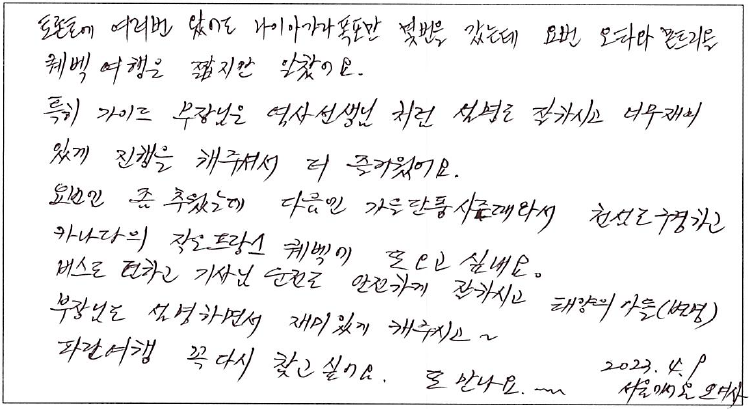 토론토에 여러번 왔어도 나이아가라 폭포만 몇번을 갔는데 요번 오타와 몬트리올
퀘벡 여행은 짧지만 알찼어요.
특히 가이드 부장님은 역사선생님 처럼 설명도 잘하시고 너무재미
있게 진행을 해주셔서 더 즐거웠어요.
요번엔 좀 추웠는데 다음엔 가을단풍시즌때와서 천섬도구경하고
카나다의 작은프랑스 퀘벡에 또 오고 싶네요.
버스도 편하고 기사님 운전도 안전하게 잘하시고 태양의 아들(별명)
부장님도 설명하면서 재미있게 해주시고~
파란여행 꼭 다시 찾고싶어요. 또 만나요.~~
2023. 4. 9
서울에서온